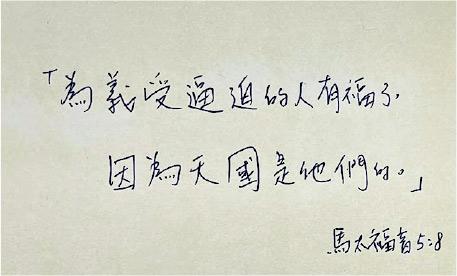 「為義受逼迫的人有福了，
因為天國是他們的。」
馬太福音5:8